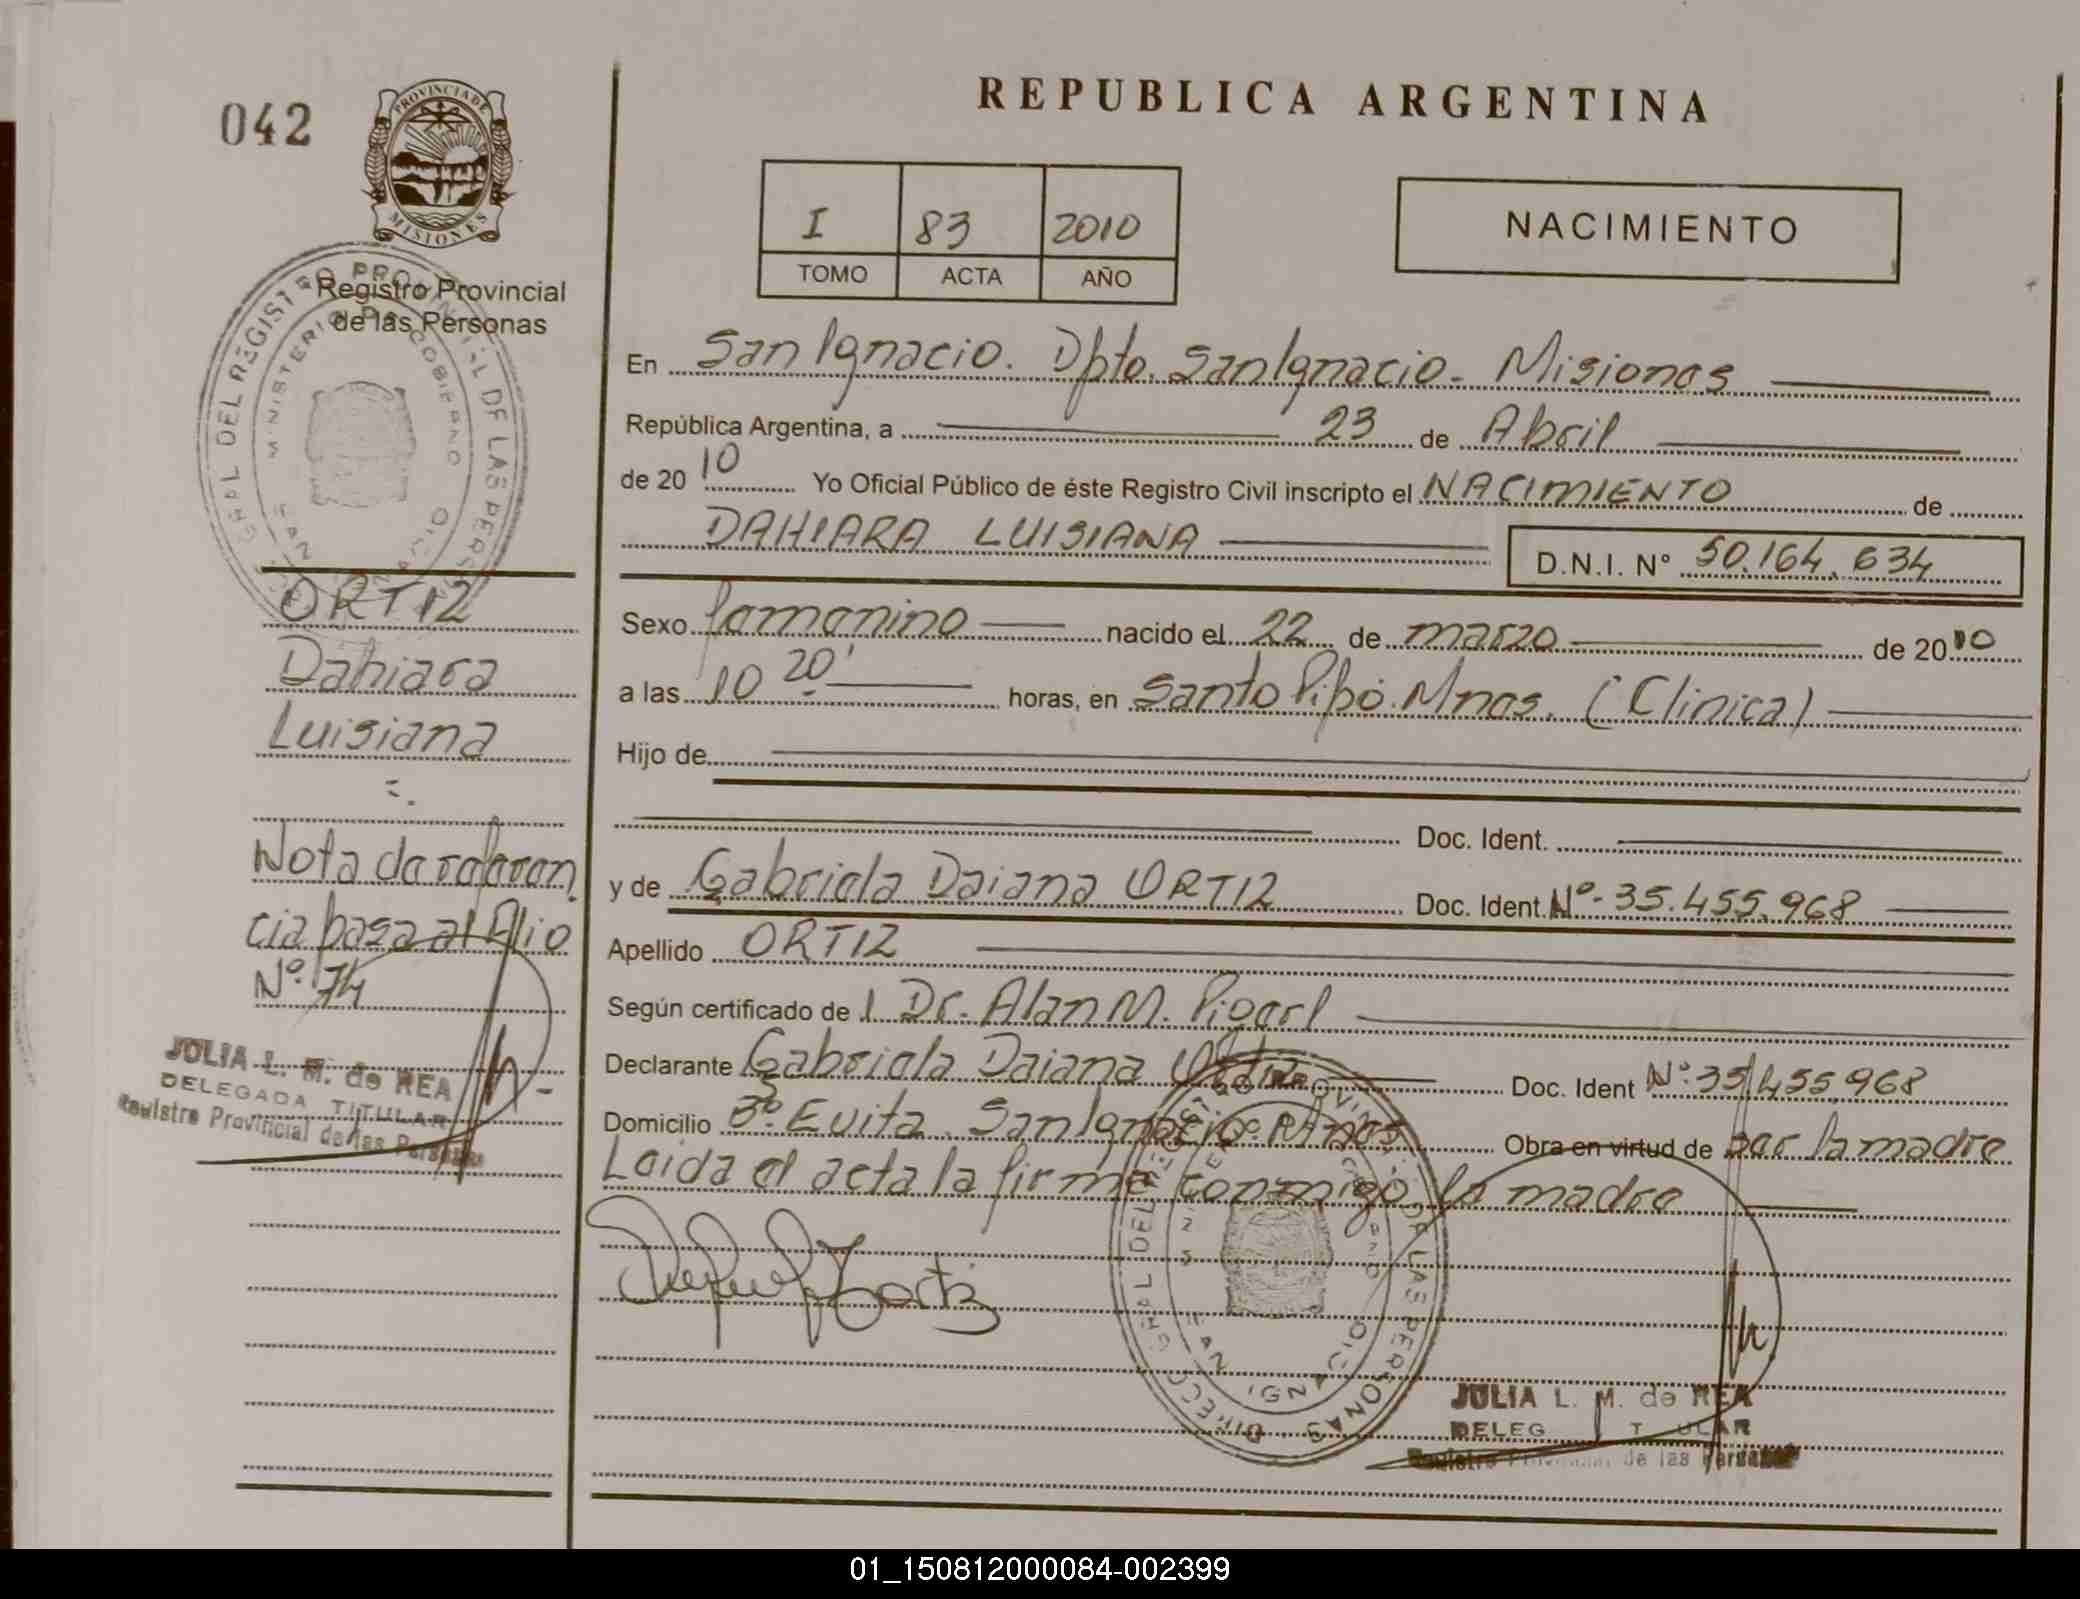 042
PROVINCIA DE
MISIONES
Registro Provincial
de las Personas
ORTIZ
Dahiara
Luisiana
Nota de referen
cia pasa al folio
Nº 74
JULIA L. M. de REA
DELEGADA TITULAR
Registro Provincial de las Personas
REPUBLICA ARGENTINA
I 83 2010
TOMO ACTA AÑO
NACIMIENTO
En San Ignacio. Dpto. San Ignacio. Misiones
República Argentina, a 23 de Abril
de 20 10 Yo Oficial Público de éste Registro Civil inscripto el NACIMIENTO de
DAHIARA LUISIANA D.N.I. Nº 50.164.634
Sexo femenino nacido el 22 de marzo de 2010
a las 10 20' horas, en Santo Pipó. Mnes. (Clinica)
Hijo de
Doc. Ident.
y de Gabriela Daiana ORTIZ Doc. Ident. Nº- 35.455.968
Apellido ORTIZ
Según certificado de l Dr. Alan M.
Declarante Gabriela Daiana Ortiz Doc. Ident Nº 35.455.968
Domicilio Bº. Evita. San Ignacio. Mnes. Obra en virtud de ser la madre
Leida el acta la firma conmigo la madre
Ortiz
JULIA L. M. de REA
DELEG T ULAR
Registro Provincial de las Personas
01_150812000084-002399